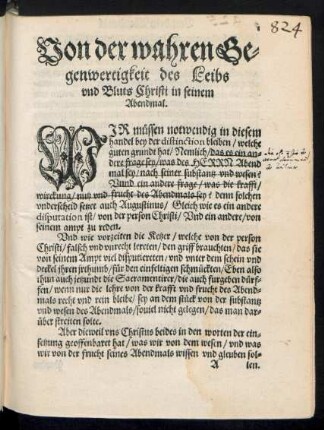 824
Von der wahren Ge-
genwertigkeit des Leibs
vnd Bluts Christi in seinem
Abendmal.
WIR müssen notwendig in diesem
handel bey der distinction bleiben / welche
guten grundt hat / Nemlich / das es ein an-
dere frage sey / was des HERRN Abend
mal sey / nach seiner substantz vnd wesen?
Vnnd ein andere frage / was die krafft /
wirckung / nutz vnd frucht des Abendmals sey / denn solchen
vnderscheid setzet auch Augustinus / Gleich wie es ein andere
disputation ist / von der person Christi / Vnd ein andere / von
seinem ampt zu reden.
Vnd wie vorzeiten die Ketzer / welche von der person
Christi / falsch vnd vnrecht lereten / den griff brauchten / das sie
von seinem Ampt viel disputierten / vnd vnter dem schein vnd
deckel ihren jrthumb / für den einfeltigen schmückten / Eben also
thun auch jetzundt die Sacramentirer / die auch fürgeben dürf-
fen / wenn nur die lehre von der krafft vnd frucht des Abend-
mals recht vnd rein bleibe / sey an dem stück von der substantz
vnd wesen des Abendmals / souiel nicht gelegen / das man dar-
über streiten solte.
Aber dieweil vns Christus beides in den worten der ein-
setzung geoffenbaret hat / was wir von dem wesen / vnd was
wir von der frucht seines Abendmals wissen vnd gleuben sol-
A len.